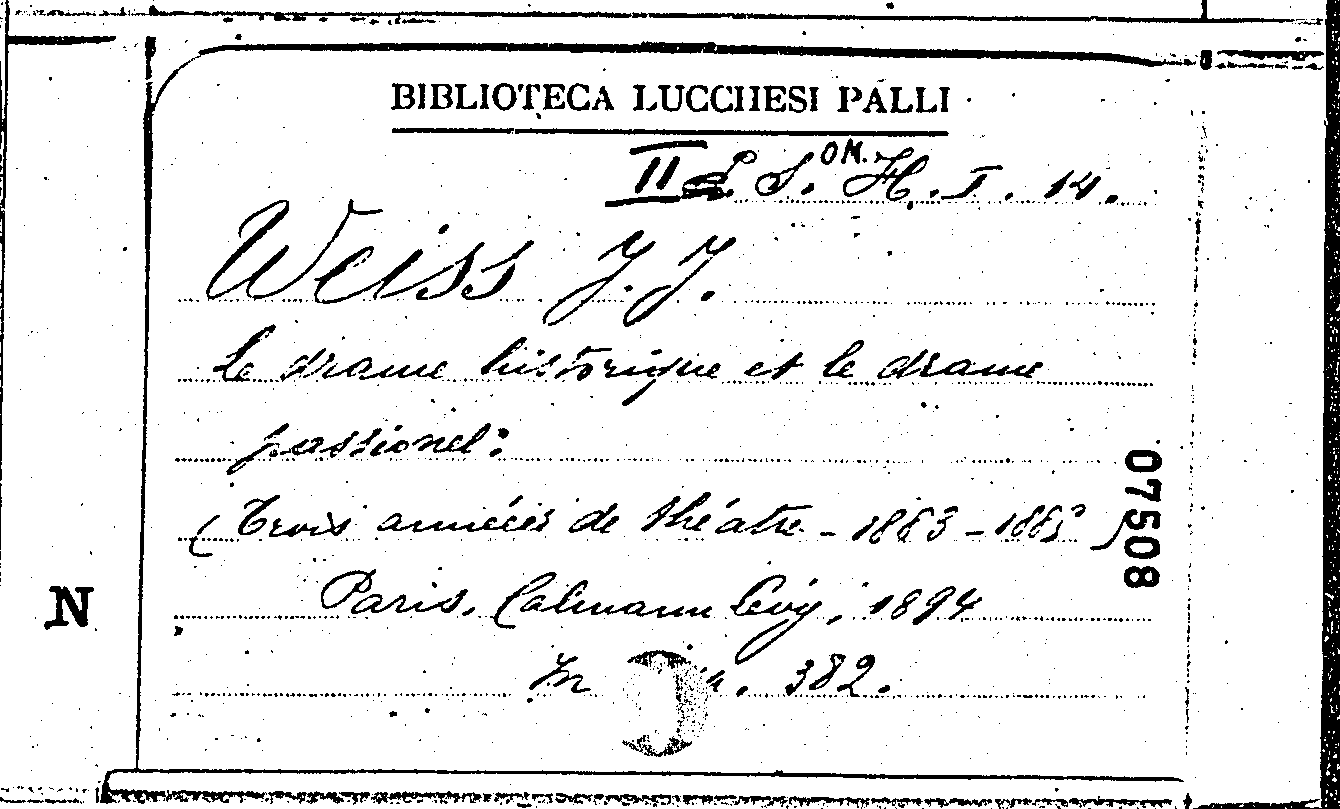 BIBLIOTECA LUCCHESI PALLI
II S. OM. H. I. 14.
Weiss J. J.
Le drame historique et le drame
passionel:
(Trois années de théatre - 1883 - 1885)
07508
N
Paris, Calmann Lévy, 1894
In 382.